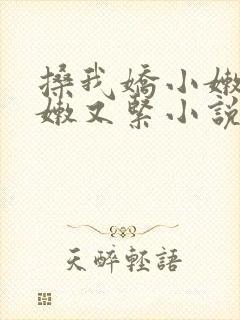 搡我嬌小嫩
嫩又緊小說
天醉輕語